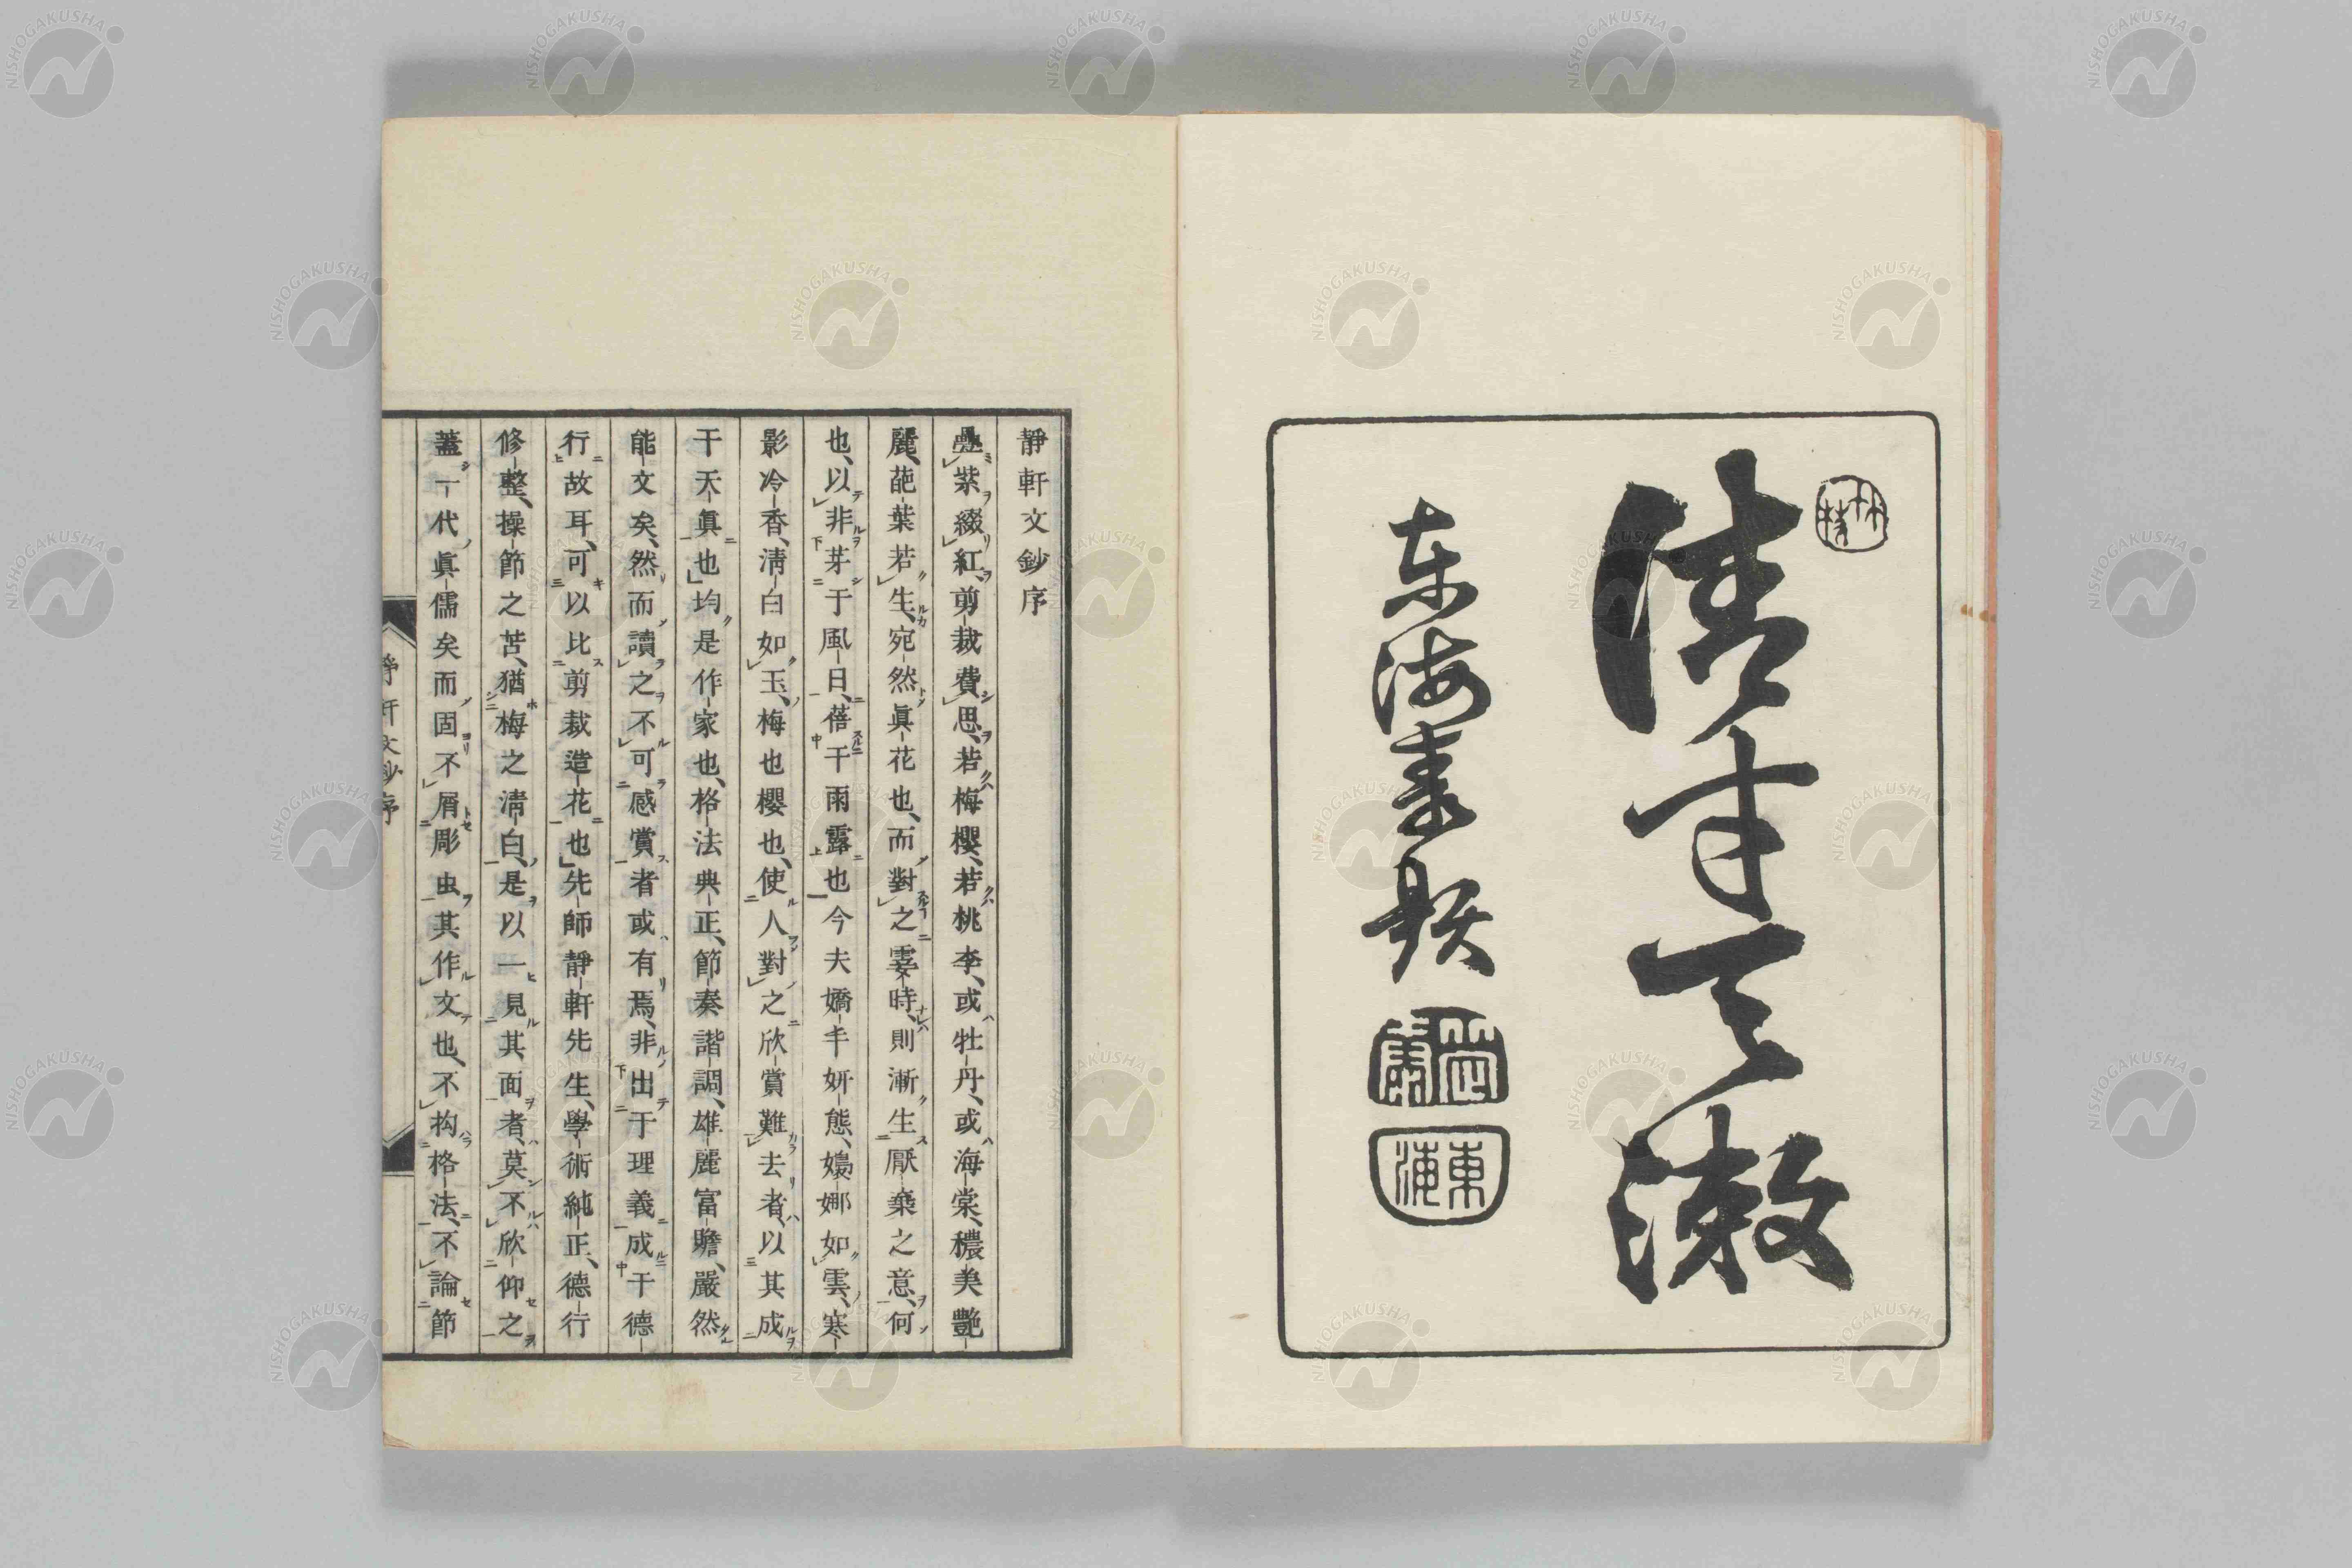 东海
東海
靜軒文鈔序
疊紫綴紅、剪裁費思、若梅櫻、若桃李、或牡丹、或海棠、穠美艷
麗、葩葉若生、宛然眞花也、而對之霎時、則漸生厭棄之意、何
也、以非芽于風日、蓓于雨露也今夫嬌丰妍態、嬝娜如雲、寒
影冷香、淸白如玉、梅也櫻也、使人對之欣賞難去者、以其成
于天眞也均是作家也、格法典正、節奏諧調、雄麗富贍、嚴然
能文矣、然而讀之不可感賞者或有焉、非出于理義成于德
行故耳、可以比剪裁造花也先師靜軒先生、學術純正、德行
修整、操節之苦、猶梅之淸白、是以一見其面者、莫不欣仰之
蓋一代眞儒矣而固不屑彫虫其作文也、不拘格法、不論節
靜軒文鈔序
NISHOGAKUSHA